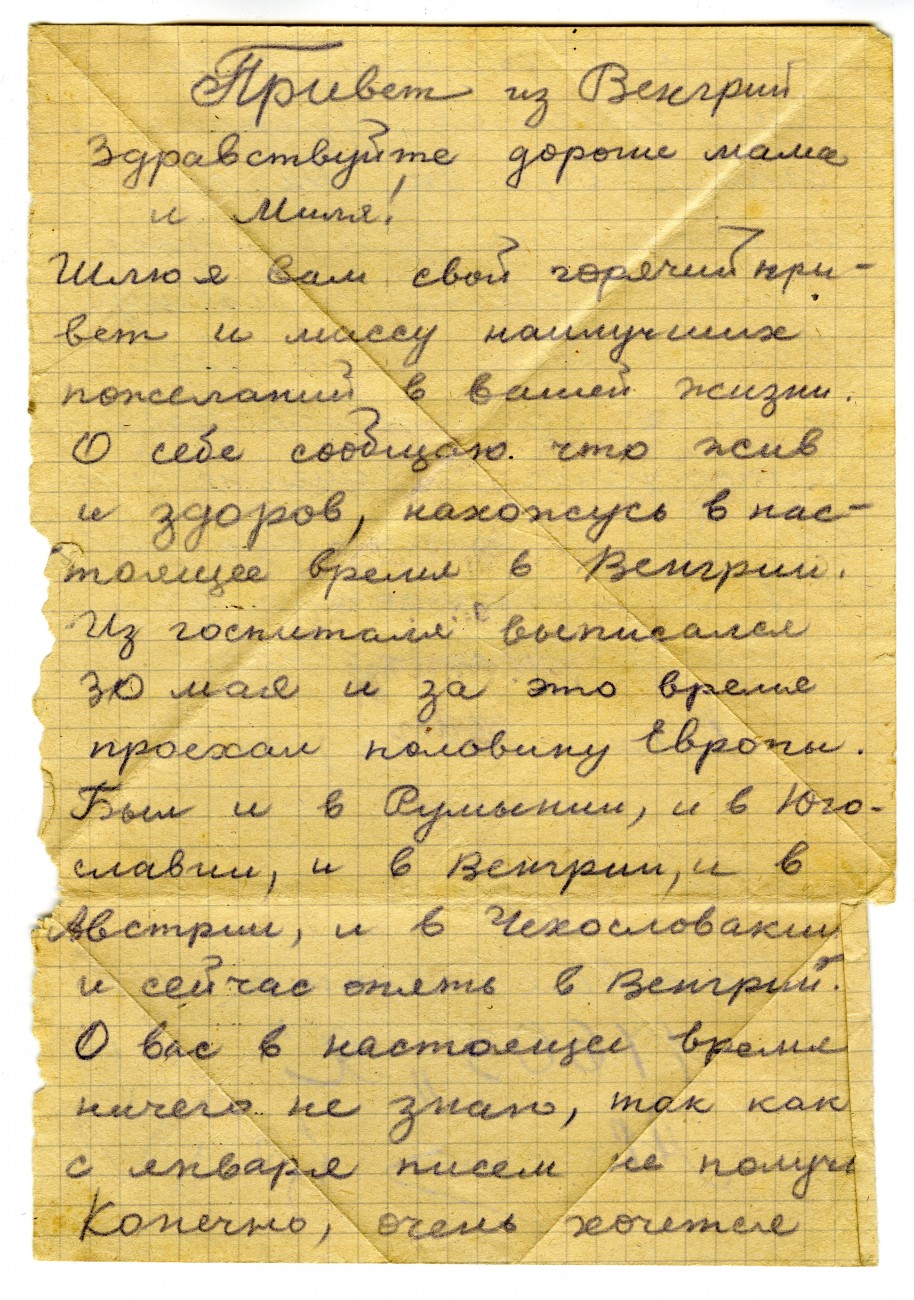 Привет из Венгрий
Здравствуйте дорогие мама
и Миля!
Шлю я вам свой горячий при-
вет и массу наилучших
пожеланий в вашей жизни.
О себе сообщаю что жив
и здоров, нахожусь в нас-
тоящее время в Венгрии.
Из госпиталя выписался
30 мая и за это время
проехал половину Европы.
Был и в Румынии, и в Юго-
славии, и в Венгрии, и в
Австрии, и в Чехословакии
и сейчас опять в Венгрий.
О вас в настоящее время
ничего не знаю, так как
с января писем не получ
Конечно, очень хочется